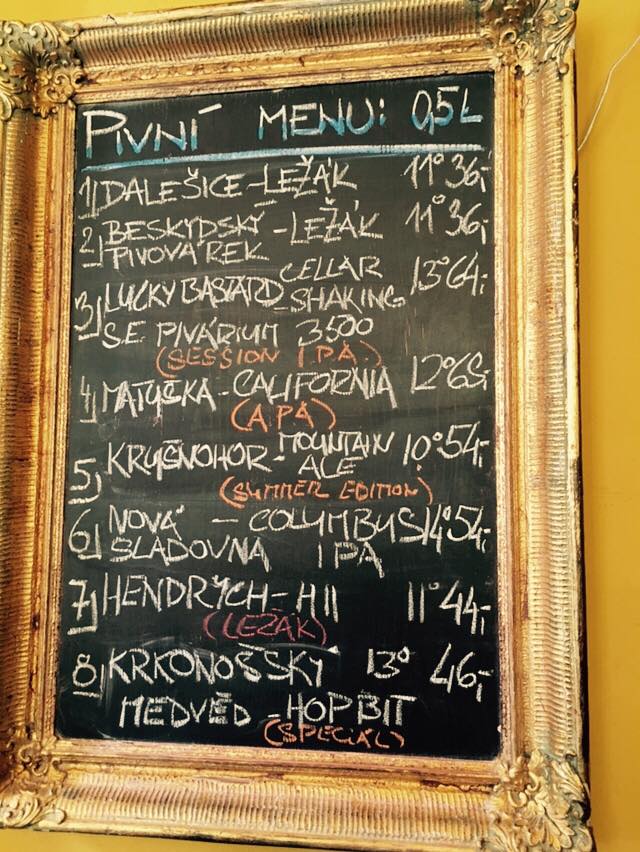 PIVNÍ MENU: 0,5L
1) DALEŠICE - LEŽÁK 11° 36,-
2) BESKYDSKÝ - LEŽÁK 11° 36,-
PIVOVÁREK
3) LUCKY BASTARD - CELLAR 13° 64,-
SHAKING
SE PIVÁRIUM 3500
(SESSION IPA)
4) MATUŠKA - CALIFORNIA 12° 65,-
(APA)
5) KRUŠNOHOR - MOUNTAIN 10° 54,-
ALE
(SUMMER EDITION)
6) NOVÁ - COLUMBUS 14° 54,-
SLADOVNA IPA
7) HENDRYCH - H11 11° 44,-
(LEŽÁK)
8) KRKONOŠSKÝ 13° 46,-
MEDVĚD - HOPBIT
(SPECIÁL)